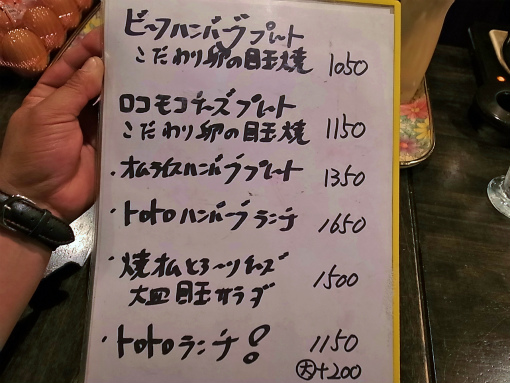 ビーフハンバーグプレート
こだわり卵の目玉焼 1050
ロコモコチーズプレート
こだわり卵の目玉焼 1150
・オムライスハンバーグプレート 1350
・トトロハンバーグランチ 1650
・焼オムとろ〜りチーズ 1500
大皿目玉サラダ
・トトロランチ! 1150
大+200